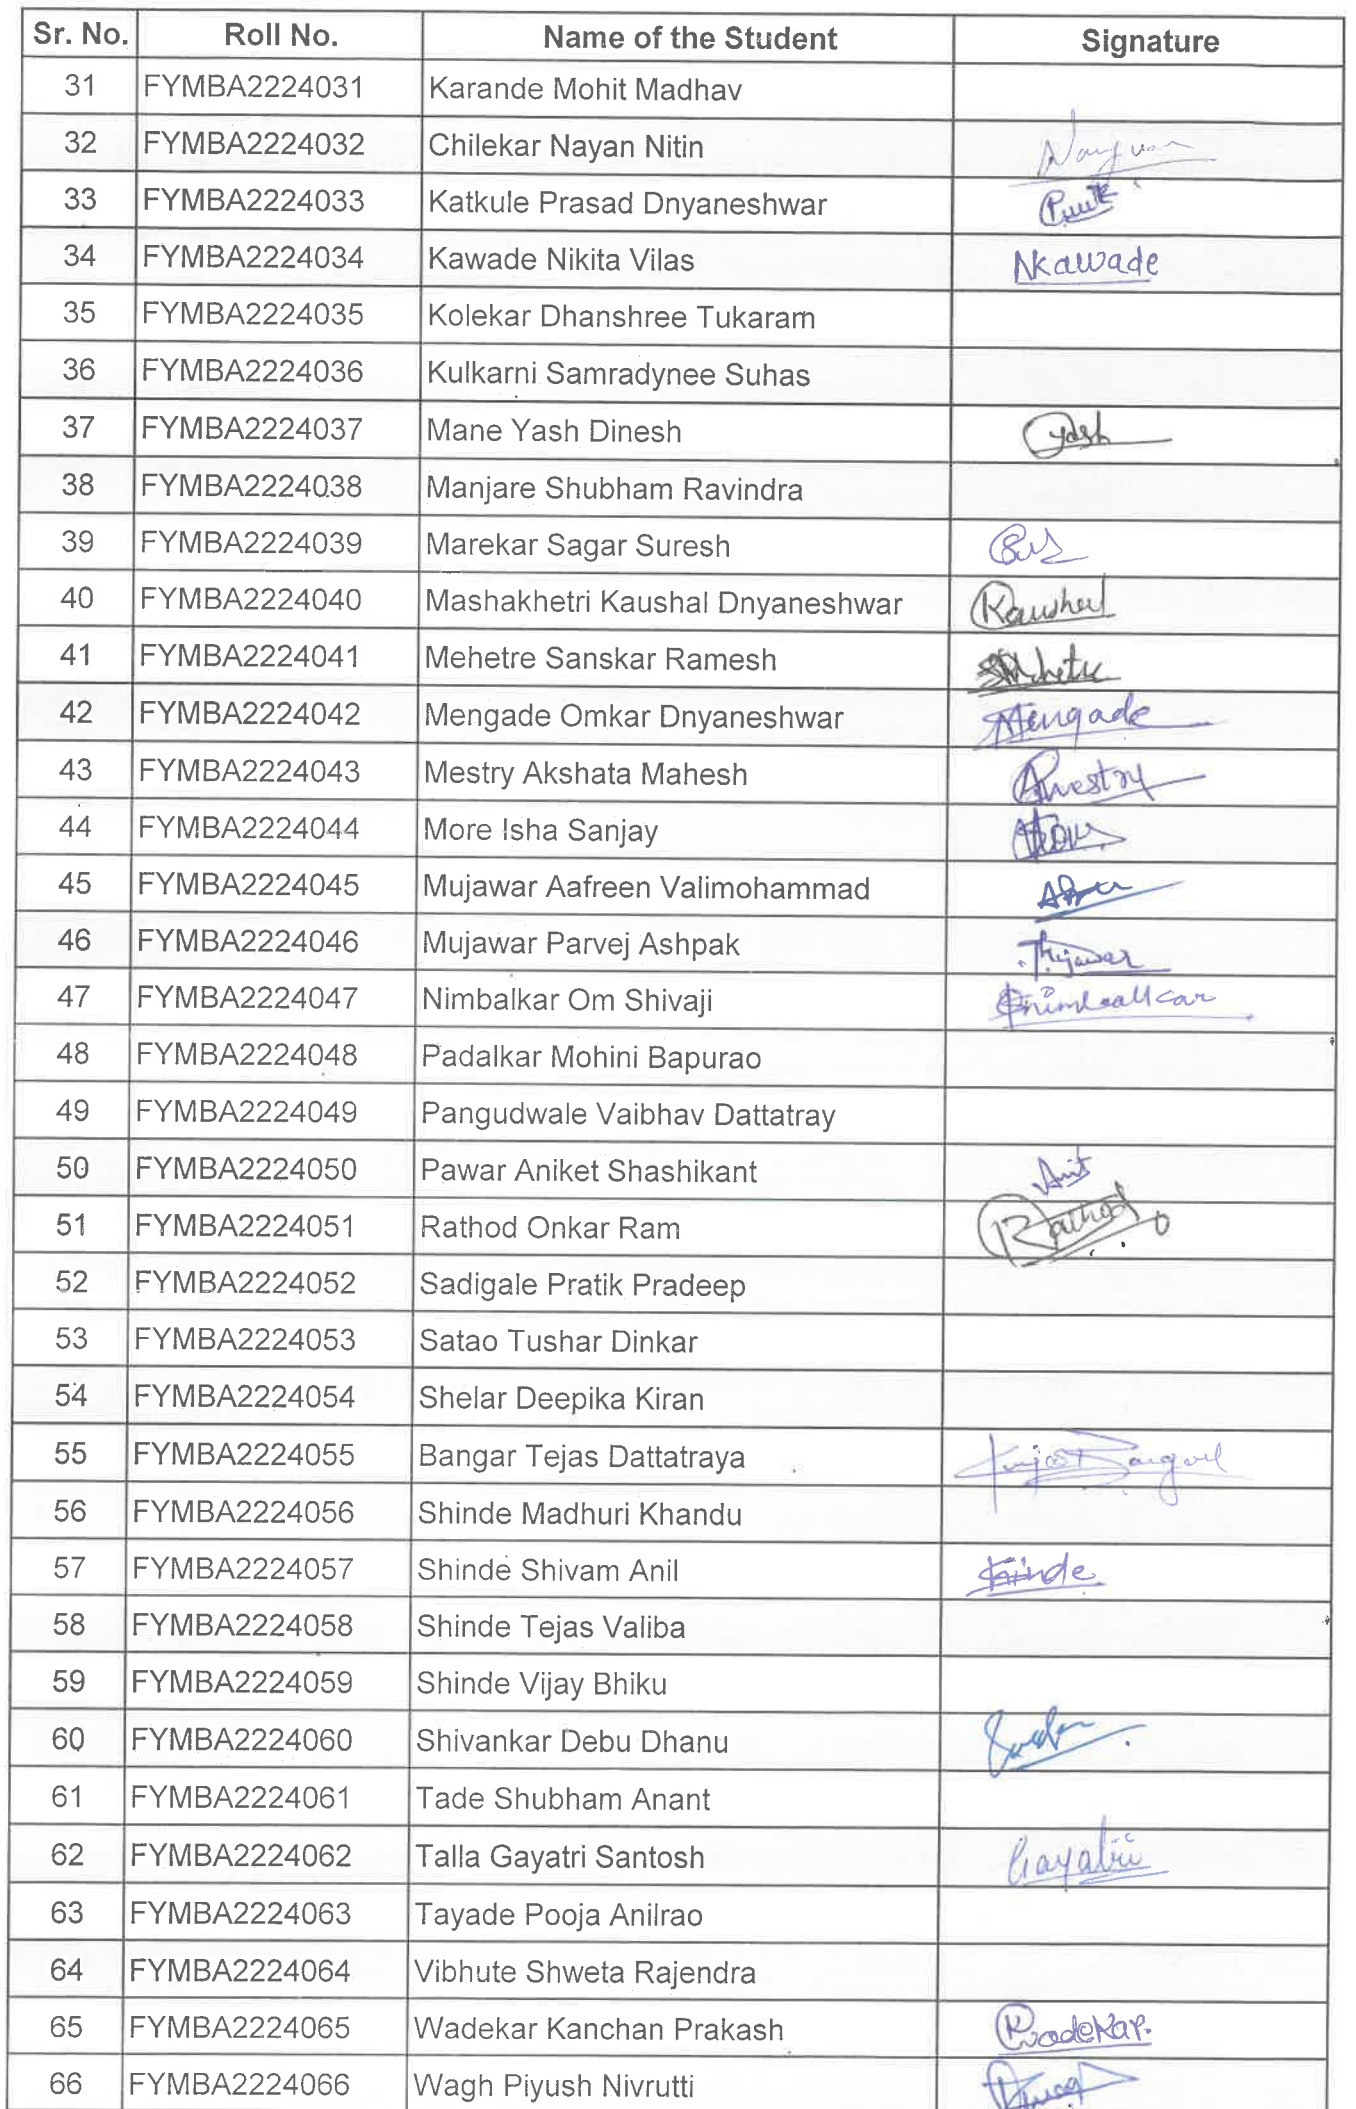 Sr. No. Roll No. Name of the Student Signature
31 FYMBA2224031 Karande Mohit Madhav
32 FYMBA2224032 Chilekar Nayan Nitin
33 FYMBA2224033 Katkule Prasad Dnyaneshwar
34 FYMBA2224034 Kawade Nikita Vilas NKawade
35 FYMBA2224035 Kolekar Dhanshree Tukaram
36 FYMBA2224036 Kulkarni Samradynee Suhas
37 FYMBA2224037 Mane Yash Dinesh Yash
38 FYMBA2224038 Manjare Shubham Ravindra
39 FYMBA2224039 Marekar Sagar Suresh
40 FYMBA2224040 Mashakhetri Kaushal Dnyaneshwar Kaushal
41 FYMBA2224041 Mehetre Sanskar Ramesh
42 FYMBA2224042 Mengade Omkar Dnyaneshwar Mengade
43 FYMBA2224043 Mestry Akshata Mahesh AMestry
44 FYMBA2224044 More Isha Sanjay
45 FYMBA2224045 Mujawar Aafreen Valimohammad
46 FYMBA2224046 Mujawar Parvej Ashpak
47 FYMBA2224047 Nimbalkar Om Shivaji
48 FYMBA2224048 Padalkar Mohini Bapurao
49 FYMBA2224049 Pangudwale Vaibhav Dattatray
50 FYMBA2224050 Pawar Aniket Shashikant
51 FYMBA2224051 Rathod Onkar Ram Rathod
52 FYMBA2224052 Sadigale Pratik Pradeep
53 FYMBA2224053 Satao Tushar Dinkar
54 FYMBA2224054 Shelar Deepika Kiran
55 FYMBA2224055 Bangar Tejas Dattatraya
56 FYMBA2224056 Shinde Madhuri Khandu
57 FYMBA2224057 Shinde Shivam Anil Shinde
58 FYMBA2224058 Shinde Tejas Valiba
59 FYMBA2224059 Shinde Vijay Bhiku
60 FYMBA2224060 Shivankar Debu Dhanu
61 FYMBA2224061 Tade Shubham Anant
62 FYMBA2224062 Talla Gayatri Santosh Gayatri
63 FYMBA2224063 Tayade Pooja Anilrao
64 FYMBA2224064 Vibhute Shweta Rajendra
65 FYMBA2224065 Wadekar Kanchan Prakash Kwadekar.
66 FYMBA2224066 Wagh Piyush Nivrutti